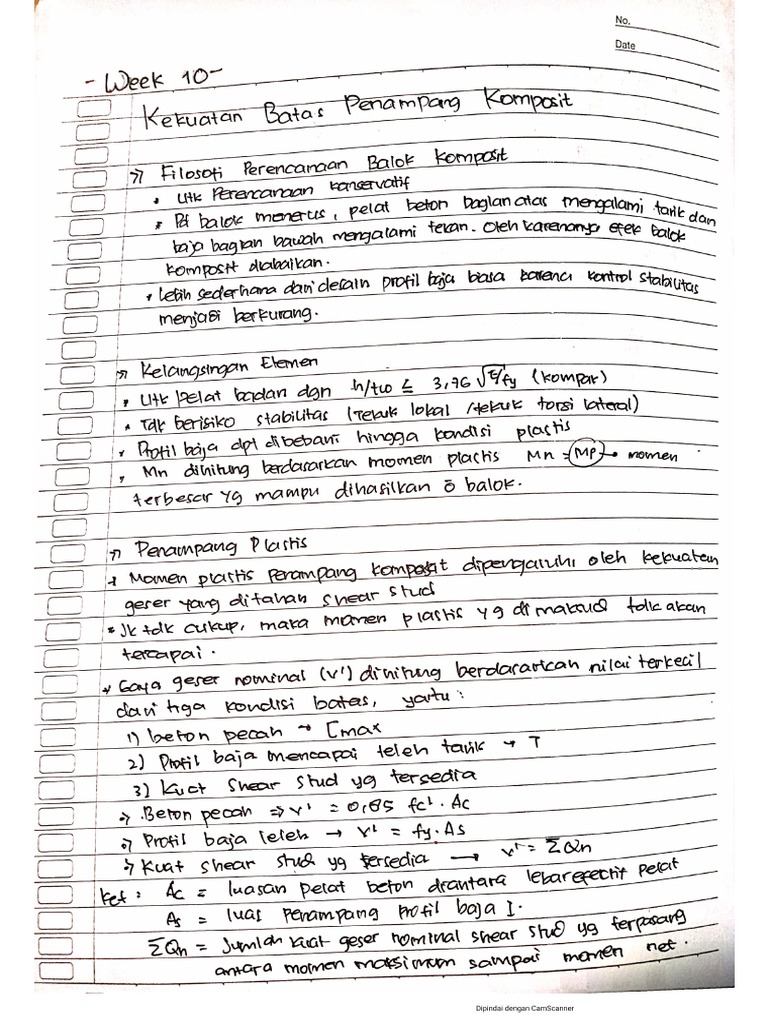 No.
Date
- Week 10 -
Kekuatan Batas Penampang Komposit
=> Filosofi Perencanaan Balok Komposit
• Utk Perencanaan konservatif
• Pd balok menerus, pelat beton bagian atas mengalami tarik dan
baja bagian bawah mengalami tekan. Oleh karenanya efek balok
komposit diabaikan.
• Lebih sederhana dari desain profil baja biasa karena kontrol stabilitas
menjadi berkurang.
=> Kelangsingan Elemen
• Utk pelat badan dgn h/tw ≤ 3,76 √E/fy (kompak)
• Tdk berisiko stabilitas (Tekuk lokal / tekuk torsi lateral)
• Profil baja dpt dibebani hingga kondisi plastis
• Mn dihitung berdasarkan momen plastis Mn = MP → momen
terbesar yg mampu dihasilkan ō balok.
=> Penampang Plastis
• Momen plastis Penampang komposit dipengaruhi oleh kekuatan
geser yang ditahan shear stud
• Jk tdk cukup, maka momen plastis yg dimaksud tdk akan
tercapai.
• Gaya geser nominal (V') dihitung berdasarkan nilai terkecil
dari tiga kondisi batas, yaitu :
1) beton pecah → Cmax
2) Profil baja mencapai leleh tarik → T
3) Kuat shear stud yg tersedia
=> Beton pecah => V' = 0,85 fc'. Ac
=> Profil baja leleh → V' = fy.As
=> Kuat shear stud yg tersedia → V' = ΣQn
ket : Ac = luasan pelat beton diantara lebar efectif pelat
As = luas Penampang profil baja I.
ΣQn = Jumlah kuat geser nominal shear stud yg terpasang
antara momen maksimum sampai momen net.
Dipindai dengan CamScanner